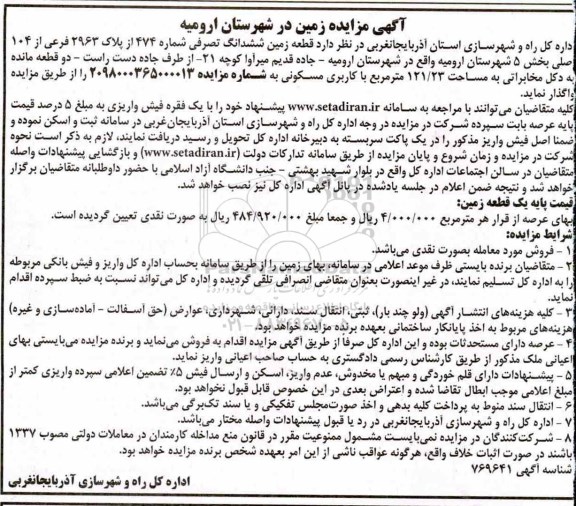 آگهی مزایده زمین در شهرستان ارومیه
اداره کل راه و شهرسازی استان آذربایجانغربی در نظر دارد قطعه زمین ششدانگ تصرفی شماره ۴۷۴ از پلاک ۲۹۶۳ فرعی از ۱۰۴
اصلی بخش ۵ شهرستان ارومیه واقع در شهرستان ارومیه - جاده قدیم میرآوا کوچه ۲۱- از طرف جاده دست راست - دو قطعه مانده
به دکل مخابراتی به مساحت ۱۲۱/۲۳ مترمربع با کاربری مسکونی به شماره مزایده ۲۰۹۸۰۰۰۳۶۵۰۰۰۰۱۳ را از طریق مزایده
واگذار نماید.
کلیه متقاضیان می‌توانند با مراجعه به سامانه www.setadiran.ir پیشنهاد خود را با یک فقره فیش واریزی به مبلغ ۵ درصد قیمت
پایه عرصه بابت سپرده شرکت در مزایده در وجه اداره کل راه و شهرسازی استان آذربایجان‌غربی در سامانه ثبت و اسکن نموده و
ضمنا اصل فیش واریز مذکور را در یک پاکت سربسته به دبیرخانه اداره کل تحویل و رسید دریافت نمایند، لازم به ذکر است نحوه
شرکت در مزایده و زمان شروع و پایان مزایده از طریق سامانه تدارکات دولت (www.setadiran.ir) و بازگشایی پیشنهادات واصله
متقاضیان در سالن اجتماعات اداره کل واقع در بلوار شهید بهشتی - جنب دانشگاه آزاد اسلامی با حضور داوطلبانه متقاضیان برگزار
خواهد شد و نتیجه ضمن اعلام در جلسه یادشده در پانل آگهی اداره کل نیز نصب خواهد شد.
قیمت پایه یک قطعه زمین:
بهای عرصه از قرار هر مترمربع ۴/۰۰۰/۰۰۰ ریال و جمعا مبلغ ۴۸۴/۹۲۰/۰۰۰ ریال به صورت نقدی تعیین گردیده است.
شرایط مزایده:
۱ - فروش مورد معامله بصورت نقدی می‌باشد.
۲ - متقاضیان برنده بایستی ظرف موعد اعلامی در سامانه بهای زمین را از طریق سامانه بحساب اداره کل واریز و فیش بانکی مربوطه
را به اداره کل تسلیم نمایند، در غیر اینصورت بعنوان متقاضی انصرافی تلقی گردیده و اداره کل می‌تواند نسبت به ضبط سپرده اقدام
نماید.
۳ - کلیه هزینه‌های انتشار آگهی (ولو چند بار)، ثبتی، انتقال سند، دارائی، شهرداری، عوارض (حق آسفالت - آماده‌سازی و غیره)
هزینه‌های مربوط به اخذ پایانکار ساختمانی بعهده برنده مزایده خواهد بود.
۴ - عرصه دارای مستحدثات بوده و این اداره کل صرفا از طریق آگهی مزایده اقدام به فروش می‌نماید و برنده مزایده می‌بایستی بهای
اعیانی ملک مذکور از طریق کارشناس رسمی دادگستری به حساب صاحب اعیانی واریز نماید.
۵ - پیشنهادات دارای قلم خوردگی و مبهم یا مخدوش، عدم واریز، اسکن و ارسال فیش ۵٪ تضمین اعلامی سپرده واریزی کمتر از
مبلغ اعلامی موجب ابطال تقاضا شده و اعتراض بعدی در این خصوص قابل قبول نخواهد بود.
۶ - انتقال سند منوط به پرداخت کلیه بدهی و اخذ صورت‌مجلس تفکیکی و یا سند تک‌برگی می‌باشد.
۷ - اداره کل راه و شهرسازی آذربایجانغربی در رد یا قبول پیشنهادات واصله مختار می‌باشد.
۸ - شرکت‌کنندگان در مزایده نمی‌بایست مشمول ممنوعیت مقرر در قانون منع مداخله کارمندان در معاملات دولتی مصوب ۱۳۳۷
باشند در صورت اثبات خلاف واقع، هرگونه عواقب ناشی از این امر بعهده شخص برنده مزایده خواهد بود.
شناسه آگهی ۷۶۹۶۴۱
اداره کل راه و شهرسازی آذربایجانغربی